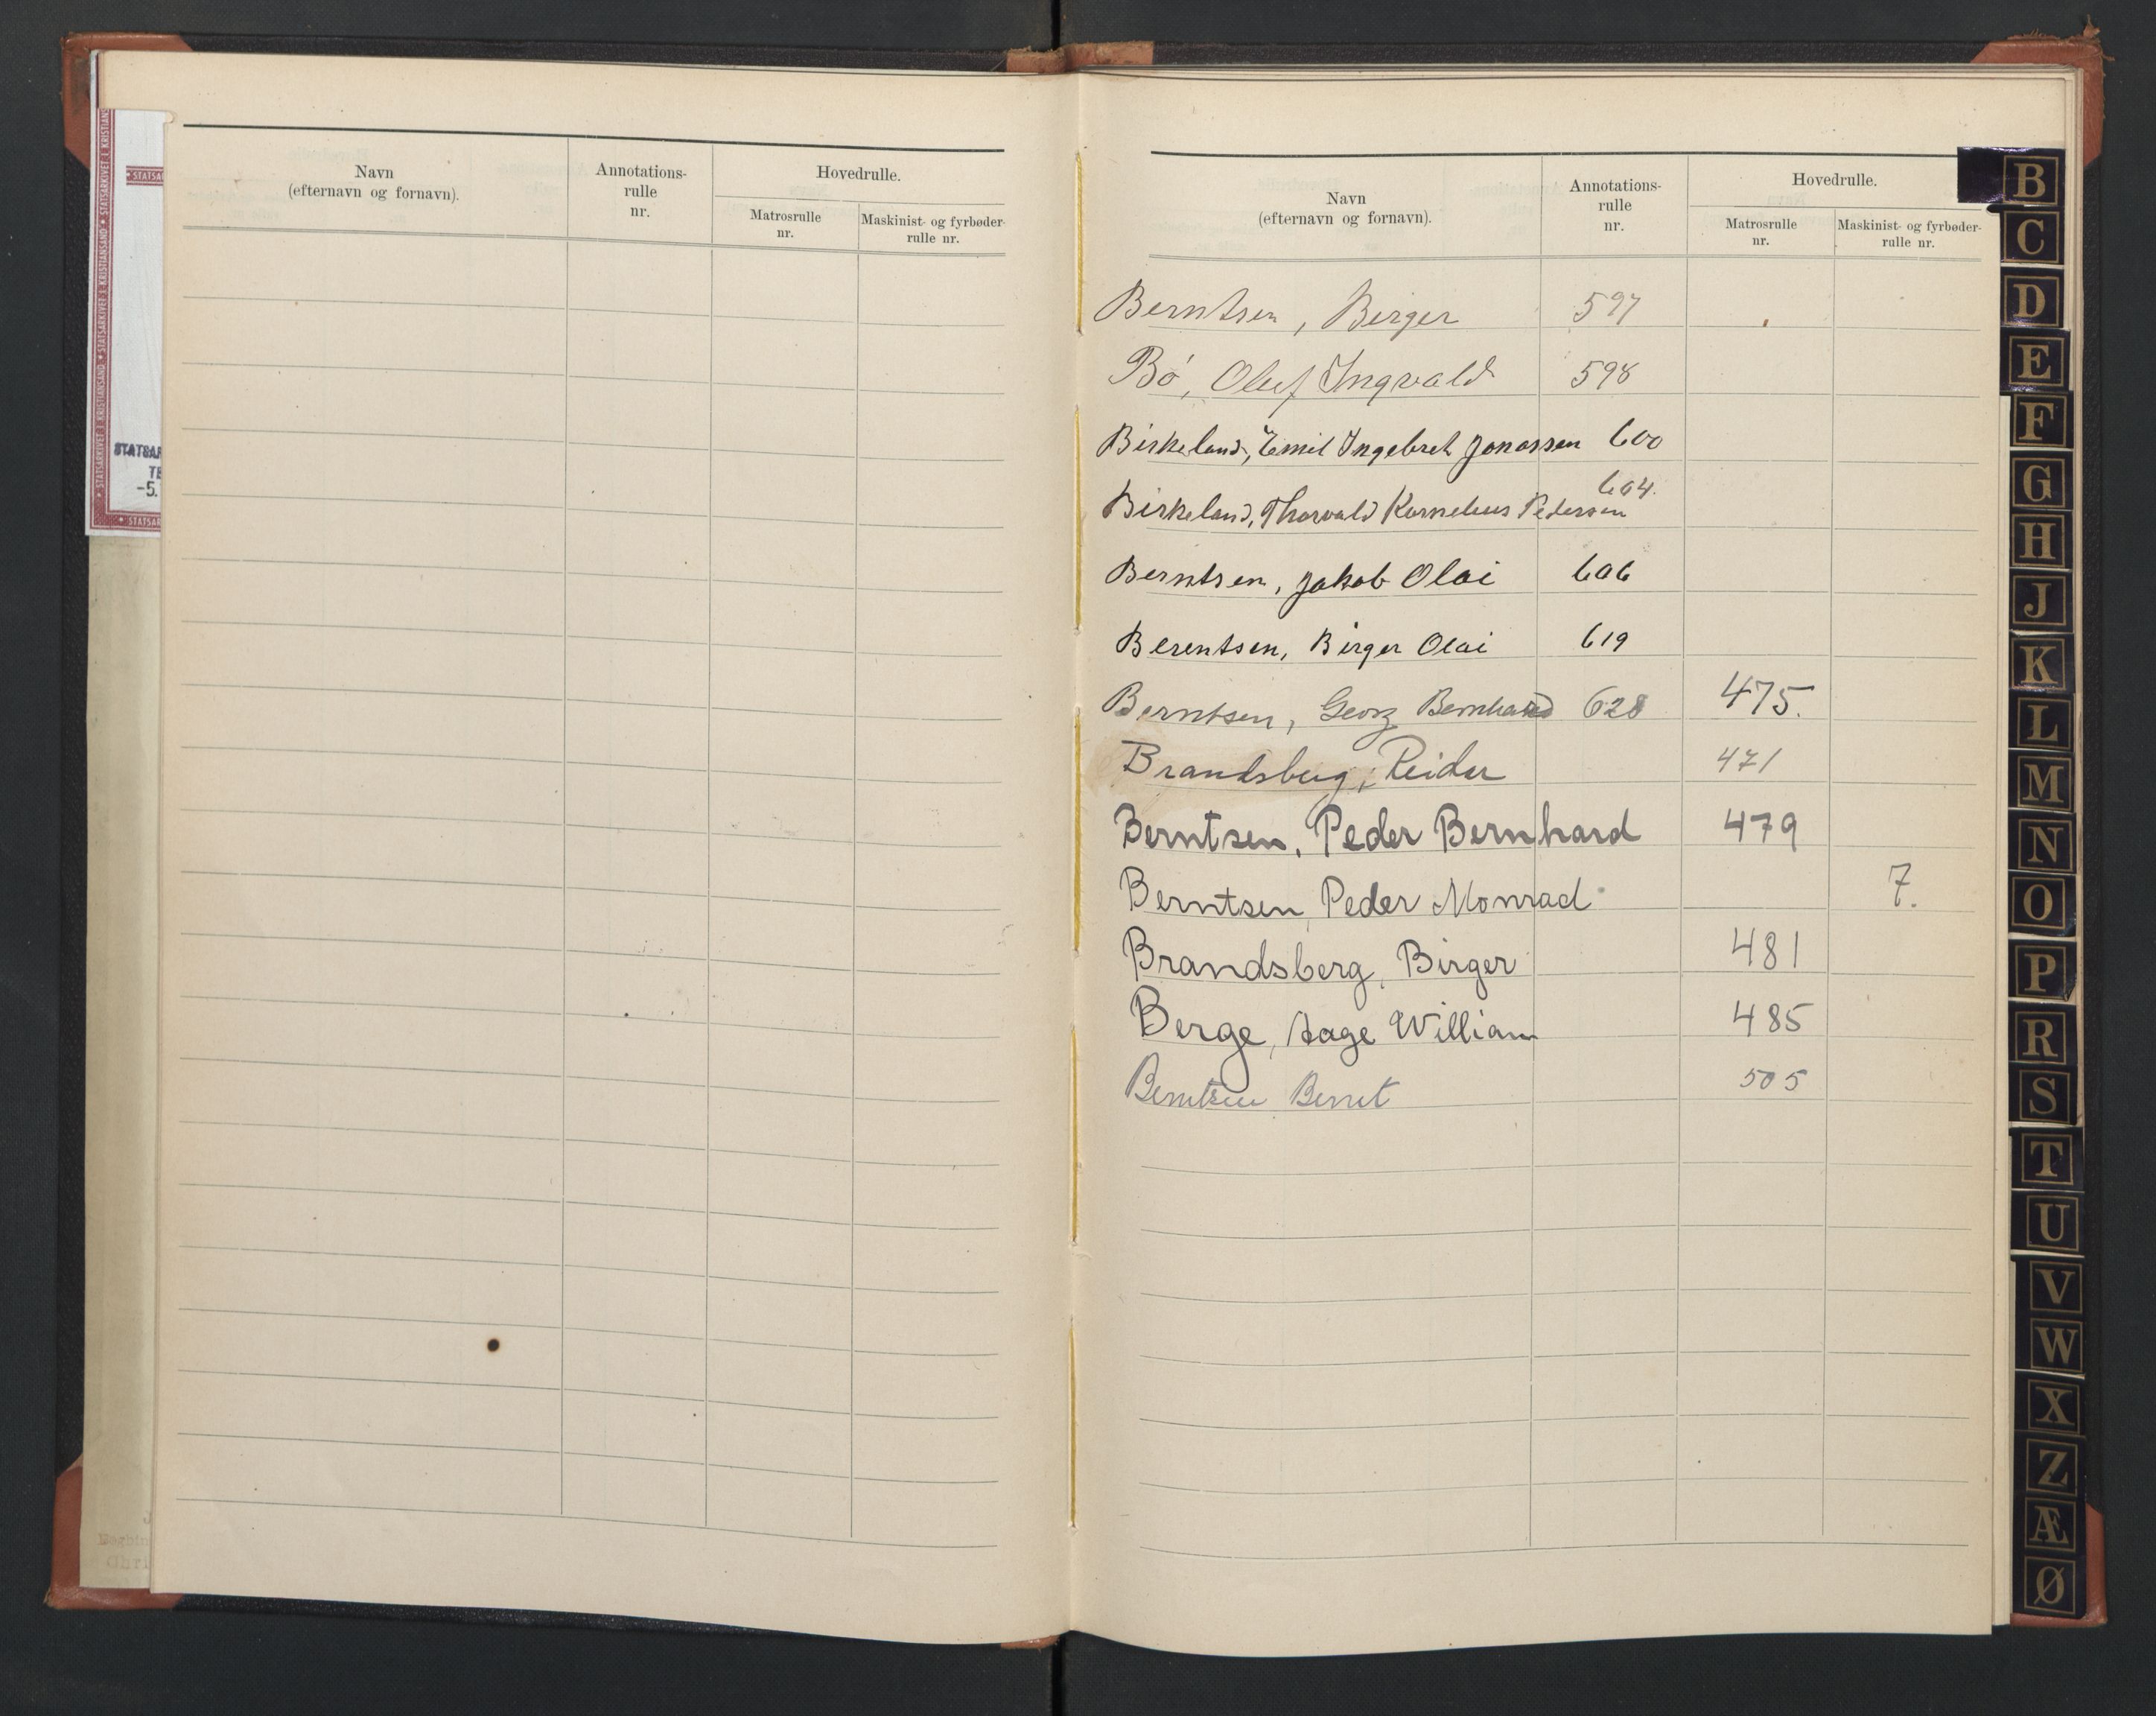 Navn
(efternavn og fornavn).
Annotations-
rulle
nr.
Hovedrulle.
Matrosrulle
nr.
Maskinist- og fyrbøder-
rulle nr.
STATSARKIVET I KRISTIANSAND • STATSARKIVET I KRISTIANSAND • STATSARKIVET I KRISTIANS
• STATSA
STATSAR
-5.
• STATSAR
Navn
(efternavn og fornavn).
Annotations-
rulle
nr.
Hovedrulle.
Matrosrulle
nr.
Maskinist- og fyrbøder-
rulle nr.
Berntsen, Birger 597
Bö, Oluf Ingvald 598
Birkeland, Emil Ingebret Jonassen 600
Birkeland, Thorvald Kornelius Pedersen 604.
Berntsen, Jakob Olai 606
Berentsen, Birger Olai 619
Berntsen, Georg Bernhard 628 475.
Brandsberg, Reidar 471
Berntsen, Peder Bernhard 479
Berntsen, Peder Monrad 7.
Brandsberg, Birger 481
Berge, Aage William 485
Berntsen Bernt 505
B
C
D
E
F
G
H
J
K
L
M
N
O
P
R
S
T
U
V
W
X
Z
Æ
Ø